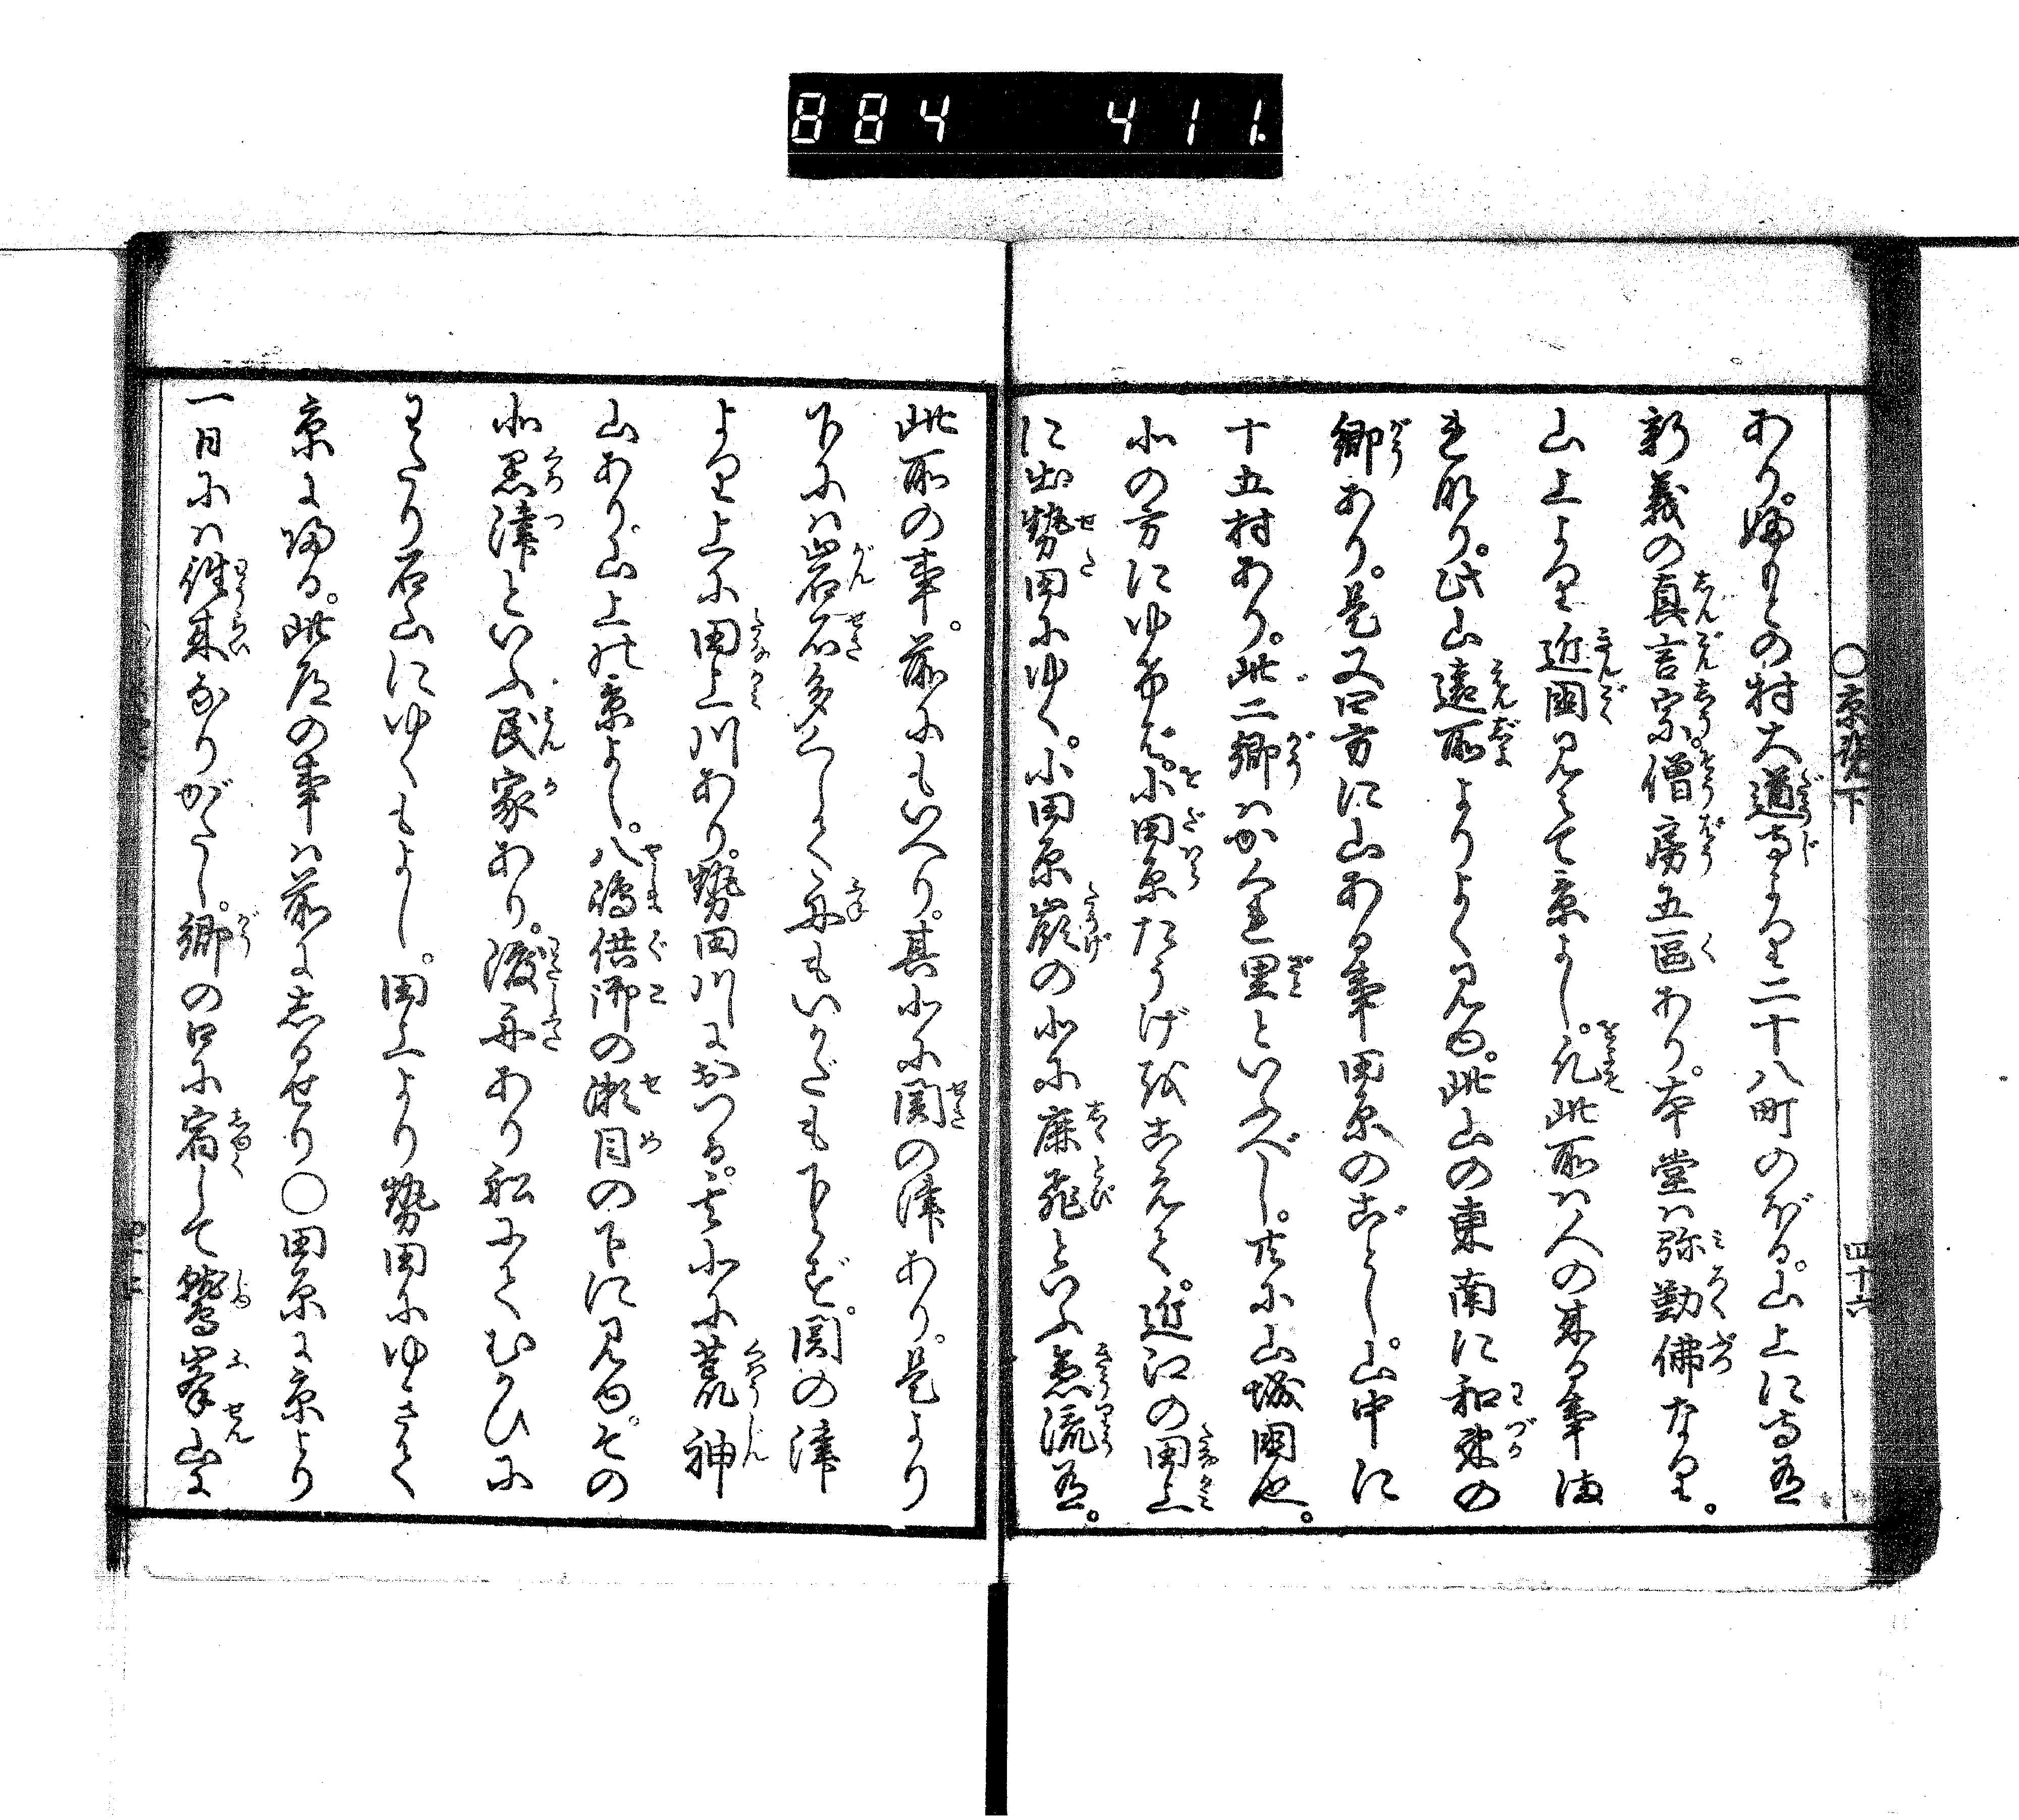 884 411
○京兆下 四十六
あり。ふもとの村大道寺より二十八町のぼる。山上に寺有
新義の真言宗。僧房五區あり。本堂ハ弥勤佛なり。
山上より近國見えて京よし。凡此所ハ人の来る事ま
れなり。此山遠所よりよく見ゆ。此山の東南に和束の
郷あり。是又四方に山ある事田原のごとし。山中に
十五村あり。此二郷ハかくれ里といふべし。共に山城國也。
北の方にゆけば。小田原たうげをこえて。近江の田上
に出勢田にゆく。小田原嶺の北に鹿飛といふ急流有。
此所の事。前にもいへり。其北に関の津あり。是より
下にハ岩石多くして舟もいかだも下らず。関の津
より上に田上川あり。勢田川におつる。其北に荒神
山あり。山上の景よし。八嶋供御の瀬目の下に見ゆ。その
北黒津といふ民家あり。渡舟あり船にてむかひに
わたり石山にゆくもよし。田上より勢田にゆきて
京に帰る。此道の事ハ前に志るせり○田原に京より
一日にハ往来なりがたし。郷の口に宿して鷲峯山に